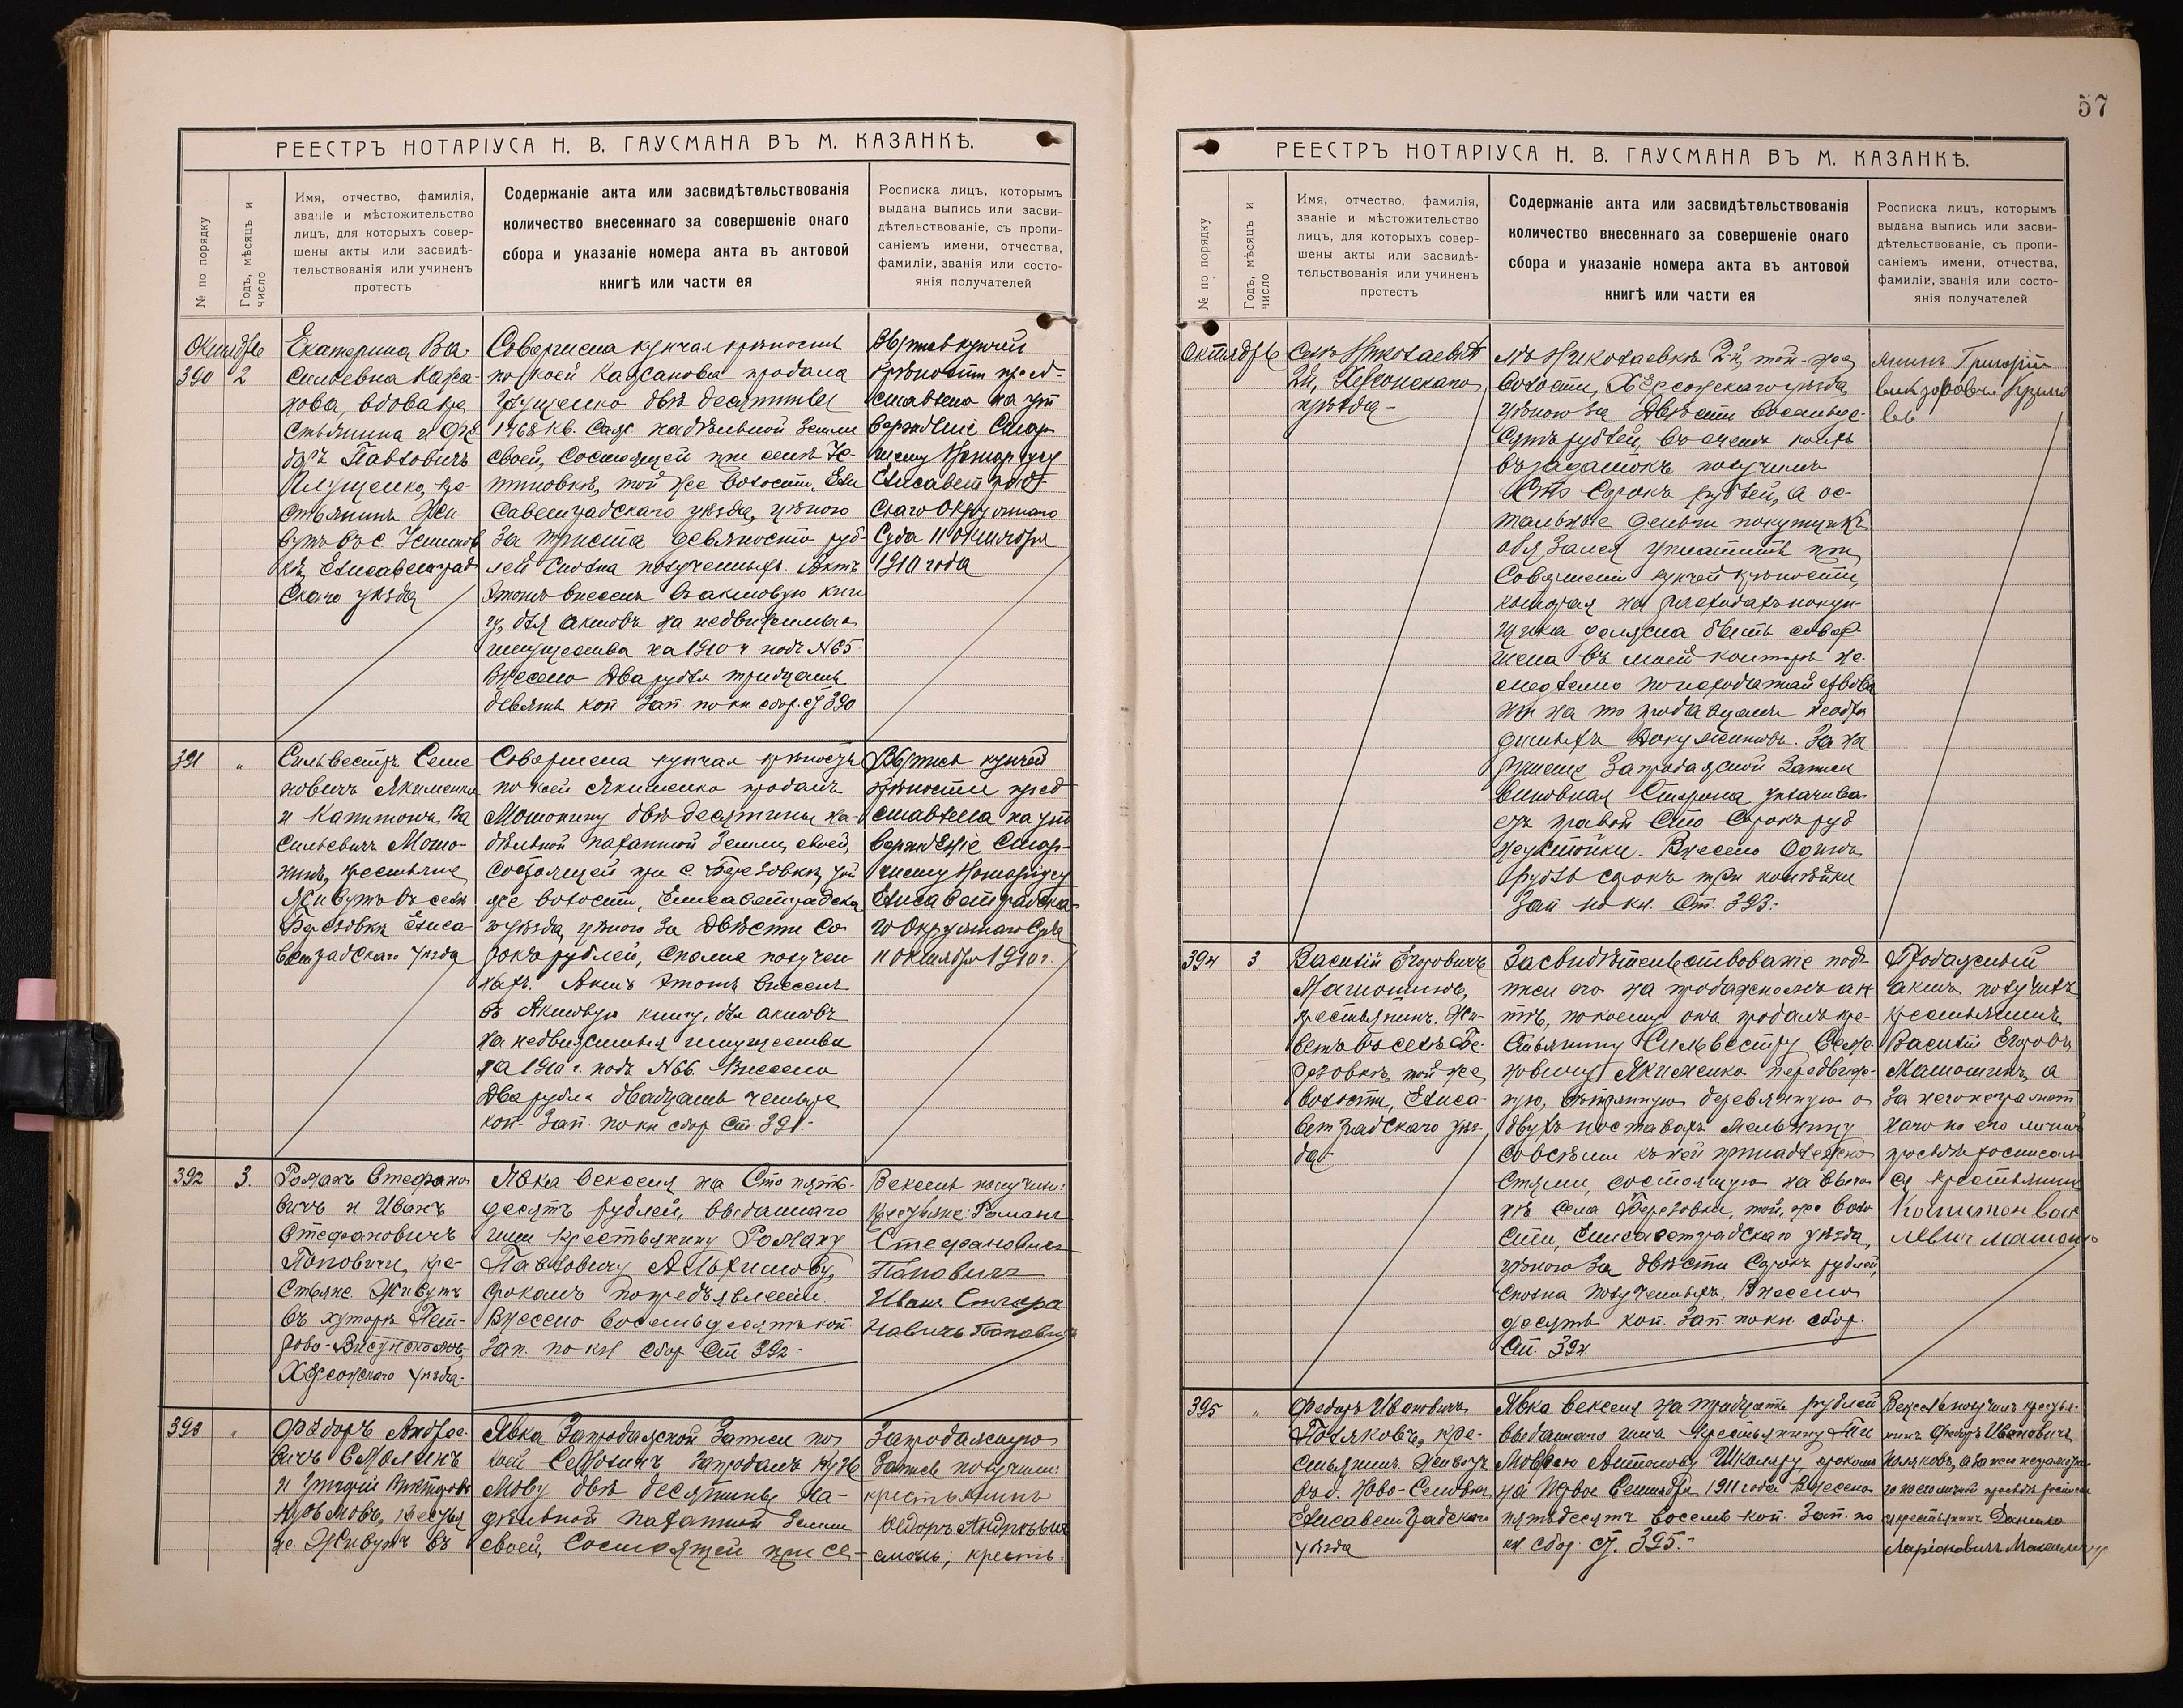 57
РЕЕСТРЪ НОТАРІУСА Н. В. ГАУСМАНА ВЪ М. КАЗАНКѢ.
№ по порядку
Годъ, мѣсяцъ и
число
Имя, отчество, фамилія,
званіе и мѣстожительство
лицъ, для которыхъ совер-
шены акты или засвидѣ-
тельствованія или учиненъ
протестъ
Содержаніе акта или засвидѣтельствованія
количество внесеннаго за совершеніе онаго
сбора и указаніе номера акта въ актовой
книгѣ или части ея
Росписка лицъ, которымъ
выдана выпись или засви-
дѣтельствованіе, съ пропи-
саніемъ имени, отчества,
фамиліи, званія или состо-
янія получателей
Октябрь
390 2
Екатерина Ва-
сильевна
хова, вдова кре
стьянина и Фе
доръ Павловичъ
кре-
стьянинъ Жи
вутъ въ с.
кѣ, Елисаветград
скаго уѣзда
Совершена купчая крѣпость
по коей продала
двѣ десятины
1468 кв. саж. надѣльной земли
своей, состоящей при селѣ
той же волости, Ели
саветградскаго уѣзда, цѣною
за триста девяносто руб-
лей сполна полученныхъ. Актъ
этотъ внесенъ въ актовую кни
гу, для актовъ на недвижимыя
имущества на 1910 г подъ N 65
Внесено Два рубля тридцать
девять коп Зап по кн сбор. ст 390
Выпись купчей
крѣпости пред-
ставлена на ут
вержденіе Стар
шему Нотаріусу
Елисаветград-
скаго Окружнаго
Суда 11 октября
1910 года
391 "
Сильвестръ Семе
новичъ Якименко
и Капитонъ Ва
сильевичъ
крестьяне
Живутъ въ селѣ
Березовкѣ Елиса
ветградскаго уѣзда
Совершена купчая крѣпость
по коей Якименко продалъ
двѣ десятины на-
дѣльной пахатной земли, своей,
состоящей при с Березовкѣ, той
же волости, Елисаветградска
го уѣзда, цѣною за двѣсти со
рокъ рублей, сполна получен
ныхъ. Актъ этотъ внесенъ
въ Актовую книгу, для актовъ
на недвижимыя имущества
на 1910 г. подъ N 66. Внесено
Два рубля двадцать четыре
коп. Зап. по кн сбор Ст 391.-
Выпись купчей
крѣпости пред
ставлена на ут
вержденіе Стар-
шему Нотаріусу
Елисаветградска-
го Окружнаго Суда
11 Октября 1910 г.
392 3.
Романъ Стефано
вичъ и Иванъ
Стефановичъ
Поповичи, кре-
стьяне. Живутъ
въ хуторѣ Пет-
рово-
Херсонскаго уѣзда.
Явка векселя на Сто пять-
десятъ рублей, выданнаго
ими крестьянину Роману
Павловичу
срокомъ по предъявленіи.
Внесено восемьдесятъ коп
Зап. по кн сбор Ст 392-
Вексель получили:
крестьяне: Романъ
Стефановичъ
Поповичъ
Иванъ Стефа
новичъ Поповичъ
393 "
Ѳедоръ Андрее-
вичъ
и Григорій
Кузьмовъ, крестья
не. Живутъ въ
Явка Запродажной Записи по
коей запродалъ Кузь
мову двѣ десятины на-
дѣльной пахатной земли
своей, состоящей при се-
Запродажную
Запись получили:
крестьянинъ
Ѳедоръ Андреевичъ
кресть-
РЕЕСТРЪ НОТАРІУСА Н. В. ГАУСМАНА ВЪ М. КАЗАНКѢ.
№ по порядку
Годъ, мѣсяцъ и
число
Имя, отчество, фамилія,
званіе и мѣстожительство
лицъ, для которыхъ совер-
шены акты или засвидѣ-
тельствованія или учиненъ
протестъ
Содержаніе акта или засвидѣтельствованія
количество внесеннаго за совершеніе онаго
сбора и указаніе номера акта въ актовой
книгѣ или части ея
Росписка лицъ, которымъ
выдана выпись или засви-
дѣтельствованіе, съ пропи-
саніемъ имени, отчества,
фамиліи, званія или состо-
янія получателей
Октябрь
селѣ Николаевкѣ
2й, Херсонскаго
уѣзда-
лѣ Николаевкѣ 2й, той-же
волости, Херсонскаго уѣзда
цѣною за Двѣсти восемьде-
сятъ рублей, въ счетъ коихъ
въ задатокъ получилъ
Сто Сорокъ рублей, а ос-
тальные деньги покупщикъ
обязался уплатить при
совершеніи купчей крѣпости,
которая на
щика должна быть совер-
шена въ моей конторѣ не-
медленно по
на то продавцемъ необхо
димыхъ Документовъ. За на
рушеніе Запродажной Записи
виновная Сторона уплачива
етъ правой Сто Сорокъ руб
неустойки. Внесено Одинъ
рубль сорокъ три копѣйки
Зап по кн. Ст. 393.-
янинъ Григорій
394 3
Василій Егоровичъ
крестьянинъ. Жи-
ветъ въ селѣ Бе-
резовкѣ, той же
волости, Елиса-
ветградскаго уѣз-
да-
Засвидѣтельствованіе под-
писи его на продажномъ ак
тѣ, по коему онъ продалъ кре-
стьянину Сильвестру Семе
новичу Якименко передвиж-
ную, вѣтряную деревянную о
двухъ поставахъ мельницу
со всѣми къ ней принадлежно
стями, состоящую на выго
нѣ села Березовки, той-же воло
сти, Елисаветградскаго уѣзда,
цѣною за двѣсти сорокъ рублей,
сполна полученныхъ. Внесено
десять коп. Зап. по кн сбор.
Ст. 394
Продажный
актъ получилъ
крестьянинъ
Василій Егоровъ
а
за него неграмот
наго по его личной
просьбѣ росписал
ся крестьянинъ
Капитонъ Васи
395 "
Ѳедоръ Ивановичъ
Поляковъ, кре-
стьянинъ. Живетъ
въ д. Ново-
Елисаветградскаго
уѣзда
Явка векселя на тридцать рублей
выданнаго имъ крестьянину Ти
моѳею Антонову Шкляру, срокомъ
на первое Сентября 1911 года Внесено
пятьдесятъ восемь коп. Зап. по
кн сбор. ст. 395.-
Вексель получилъ крестья-
нинъ Ѳедоръ Ивановичъ
Поляковъ, а за него неграмотна
го по его личной просьбѣ росписал
ся крестьянинъ Данило
Ларіоновичъ